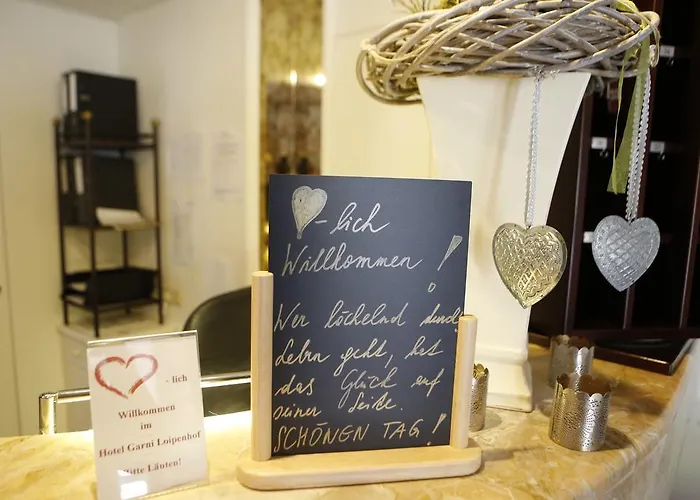 ♥-lich
Willkommen!
Wer lächelnd durchs
Leben geht, hat
das Glück auf
seiner Seite.
SCHÖNEN TAG!
♥ - lich
Willkommen
im
Hotel Garni Loipenhof
Bitte Läuten!